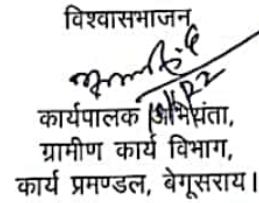 विश्वासभाजन
कार्यपालक अभियंता,
ग्रामीण कार्य विभाग,
कार्य प्रमण्डल, बेगूसराय।